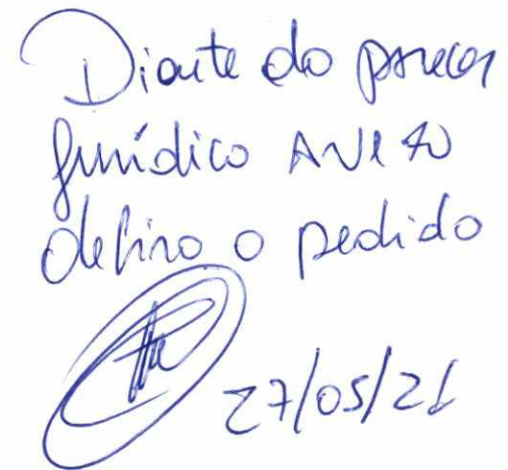 Diante do parecer
jurídico anexo
defiro o pedido
27/05/21